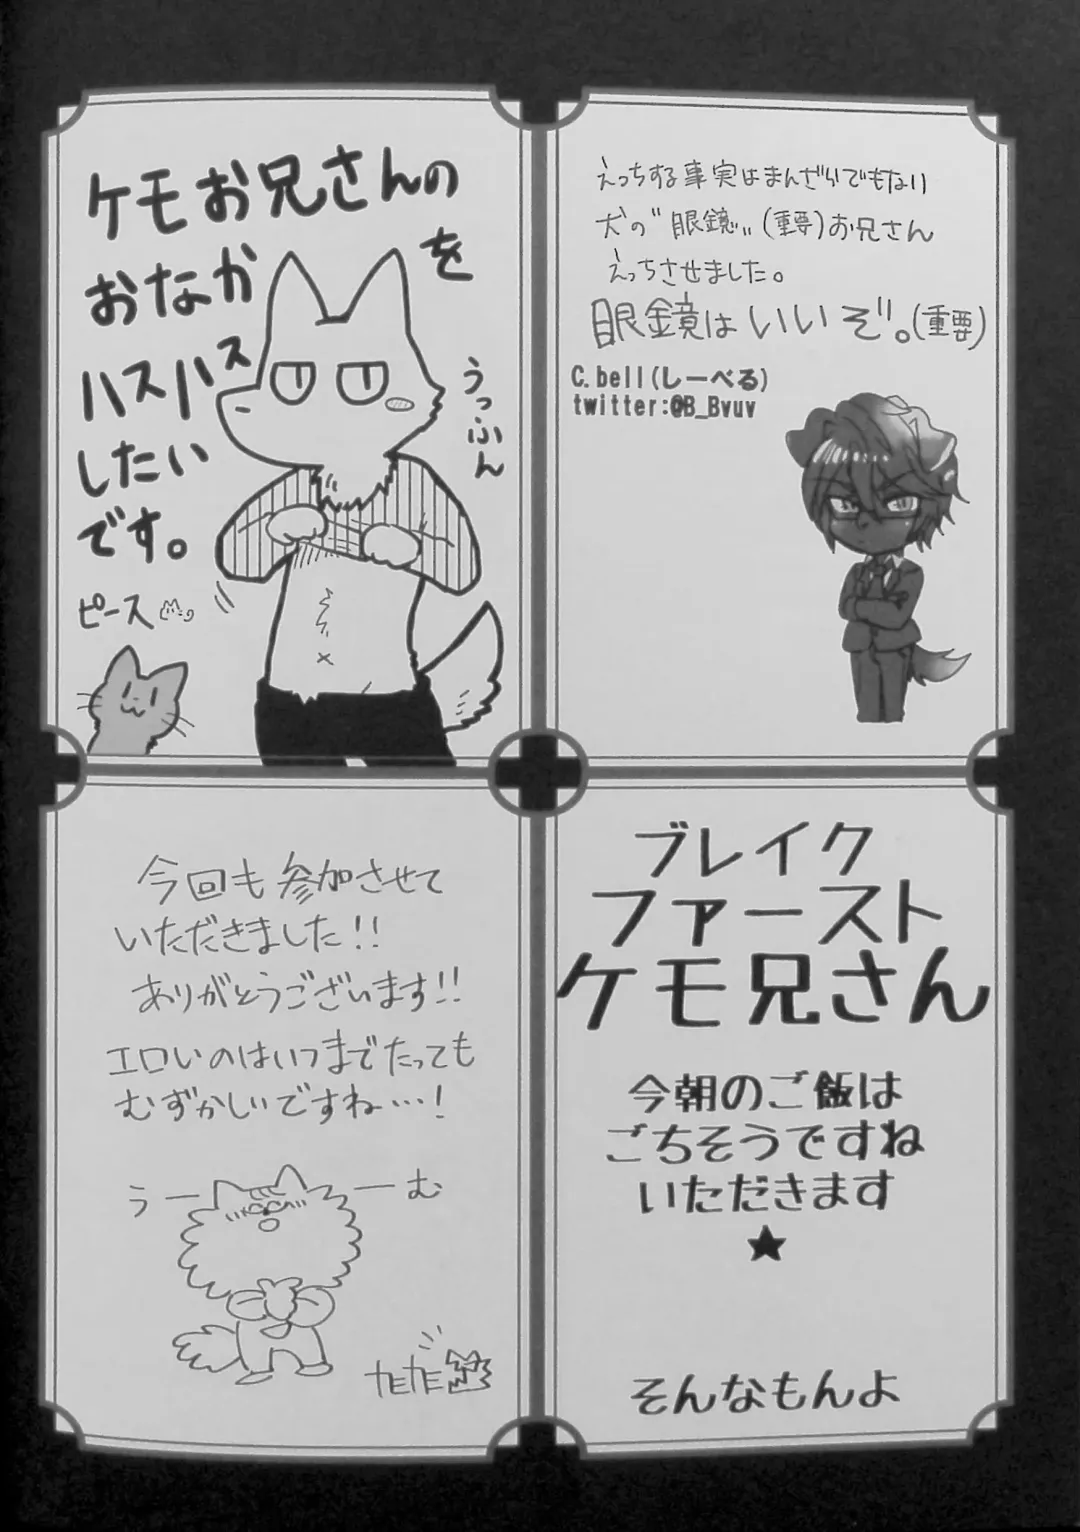 ケモお兄さんの
おなかを
ハスハス
したい
です。
うっふん
ピース
えっちする事実はまんざらでもない
犬の"眼鏡"(重要)お兄さん
えっちさせました。
眼鏡はいいぞ。(重要)
C.bell(しーべる)
twitter:@B_Bvuv
今回も参加させて
いただきました!!
ありがとうございます!!
エロいのはいつまでたっても
むずかしいですね…!
うー ーむ
ブレイク
ファースト
ケモ兄さん
今朝のご飯は
ごちそうですね
いただきます
★
そんなもんよ